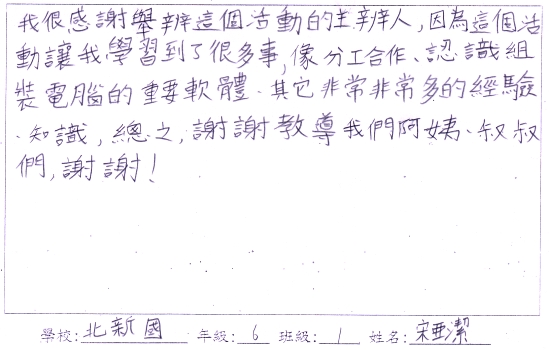 我很感謝舉辨這個活動的主辨人,因為這個活
動讓我學習到了很多事,像分工合作、認識組
裝電腦的重要軟體、其它非常非常多的經驗
、知識,總之,謝謝教導我們阿姨、叔叔
們,謝謝!
學校:北新國 年級:6 班級:1 姓名:宋亜潔